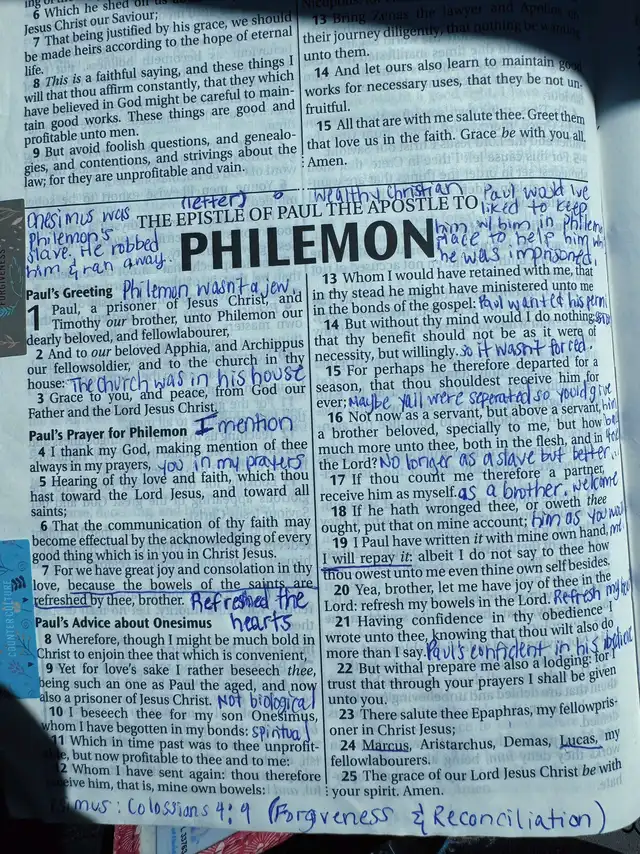 6 Which he shed on us
Jesus Christ our Saviour;
7 That being justified by his grace, we should
be made heirs according to the hope of eternal
life.
8 This is a faithful saying, and these things I
will that thou affirm constantly, that they which
have believed in God might be careful to main-
tain good works. These things are good and
profitable unto men.
9 But avoid foolish questions, and genealo-
gies, and contentions, and strivings about the
law; for they are unprofitable and vain.
13 Bring Zenas the lawyer and Apollos
their journey diligently, that nothing be wanting
unto them.
14 And let ours also learn to maintain good
works for necessary uses, that they be not un-
fruitful.
15 All that are with me salute thee. Greet them
that love us in the faith. Grace be with you all.
Amen.
(letter)
wealthy Christian
THE EPISTLE OF PAUL THE APOSTLE TO
PHILEMON
Onesimus was
Philemon's
slave. He robbed
him & ran away.
Paul would've
liked to keep
him w/ him in Philemon
place to help him
he was imprisoned.
Paul's Greeting Philemon wasn't a jew.
1 Paul, a prisoner of Jesus Christ, and
Timothy our brother, unto Philemon our
dearly beloved, and fellowlabourer,
2 And to our beloved Apphia, and Archippus
our fellowsoldier, and to the church in thy
house: The church was in his house
3 Grace to you, and peace, from God our
Father and the Lord Jesus Christ.
Paul's Prayer for Philemon I mention
4 I thank my God, making mention of thee
always in my prayers, you in my prayers
5 Hearing of thy love and faith, which thou
hast toward the Lord Jesus, and toward all
saints;
6 That the communication of thy faith may
become effectual by the acknowledging of every
good thing which is in you in Christ Jesus.
7 For we have great joy and consolation in thy
love, because the bowels of the saints are
refreshed by thee, brother. Refreshed the
hearts
Paul's Advice about Onesimus
8 Wherefore, though I might be much bold in
Christ to enjoin thee that which is convenient,
9 Yet for love's sake I rather beseech thee,
being such an one as Paul the aged, and now
also a prisoner of Jesus Christ. Not biological
10 I beseech thee for my son Onesimus,
whom I have begotten in my bonds: spiritual
11 Which in time past was to thee unprofit-
able, but now profitable to thee and to me:
12 Whom I have sent again: thou therefore
receive him, that is, mine own bowels:
13 Whom I would have retained with me, that
in thy stead he might have ministered unto me
in the bonds of the gospel: Paul wanted his
14 But without thy mind would I do nothing;
that thy benefit should not be as it were of
necessity, but willingly. So it wasn't forced.
15 For perhaps he therefore departed for a
season, that thou shouldest receive him for
ever; Maybe yall were seperated so you'd give
16 Not now as a servant, but above a servant, him
a brother beloved, specially to me, but how
much more unto thee, both in the flesh, and in
the Lord? No longer as a slave but better..
17 If thou count me therefore a partner,
receive him as myself. as a brother. welcome
18 If he hath wronged thee, or oweth thee
ought, put that on mine account; him as you would
19 I Paul have written it with mine own hand, me
I will repay it: albeit I do not say to thee how
thou owest unto me even thine own self besides.
20 Yea, brother, let me have joy of thee in the
Lord: refresh my bowels in the Lord. Refresh my
21 Having confidence in thy obedience I
wrote unto thee, knowing that thou wilt also do
more than I say. Paul's confident in his
22 But withal prepare me also a lodging: for I
trust that through your prayers I shall be given
unto you.
23 There salute thee Epaphras, my fellowpris-
oner in Christ Jesus;
24 Marcus, Aristarchus, Demas, Lucas, my
fellowlabourers.
25 The grace of our Lord Jesus Christ be with
your spirit. Amen.
Colossians 4:9 (Forgiveness & Reconciliation)
FORGIVENESS
COUNTERCULTURE